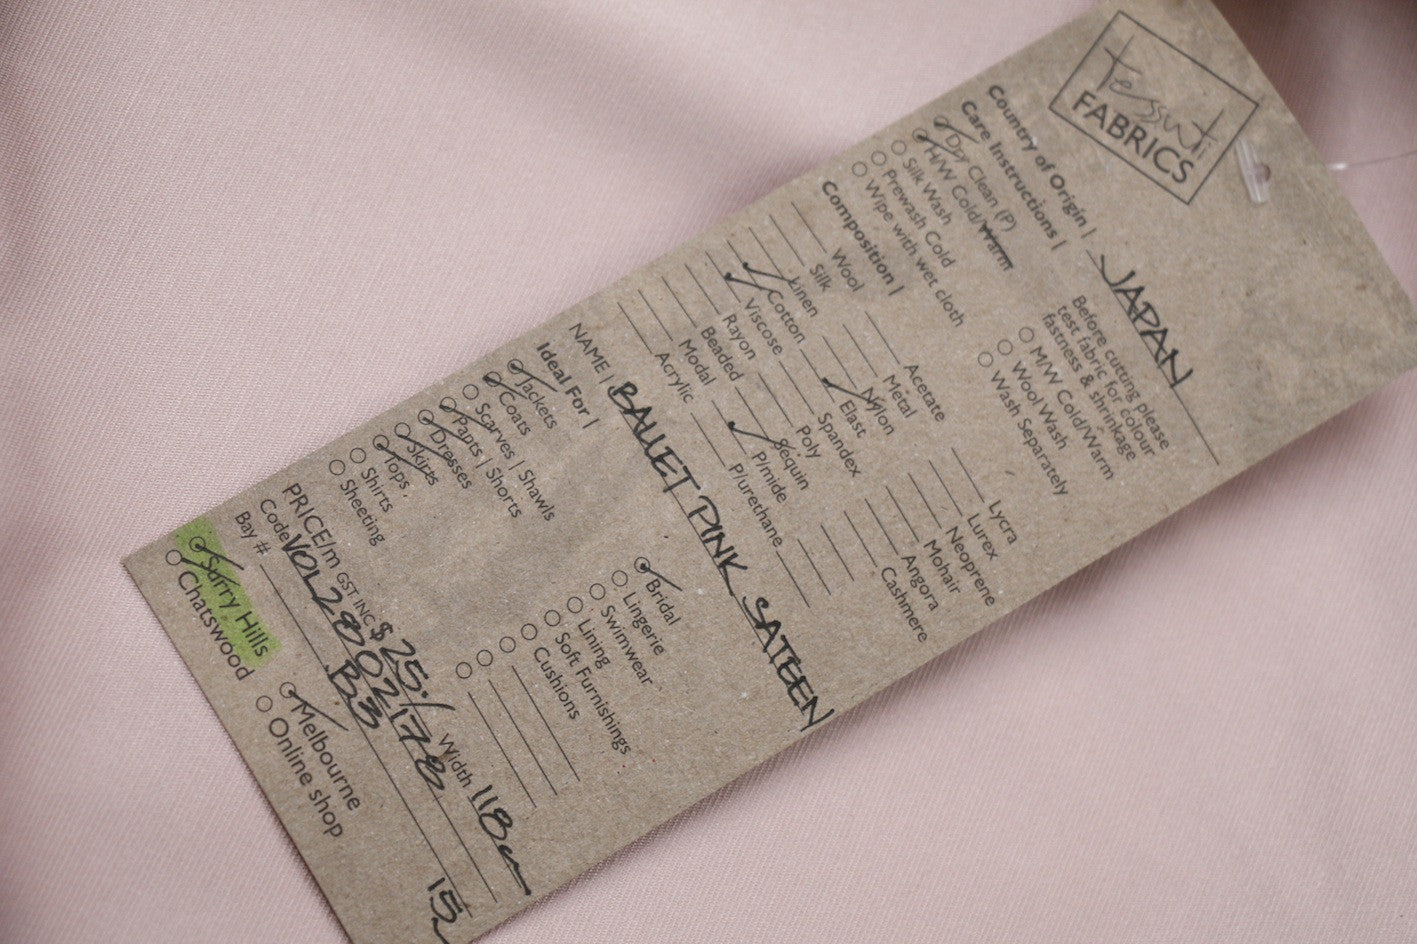 tessuti
FABRICS
Country of Origin | JAPAN
Care Instructions |
Dry Clean (P)
H/W Cold/Warm
Silk Wash
Prewash Cold
Wipe with wet cloth
Before cutting please
test fabric for colour
fastness & shrinkage
M/W Cold/Warm
Wool Wash
Wash Separately
Composition |
Wool
Silk
Linen
Cotton
Viscose
Rayon
Beaded
Modal
Acrylic
Acetate
Metal
Nylon
Elast
Spandex
Poly
Sequin
P/mide
P/urethane
Lycra
Lurex
Neoprene
Mohair
Angora
Cashmere
NAME | BALLET PINK SATEEN
Ideal For |
Jackets
Coats
Scarves | Shawls
Pants | Shorts
Dresses
Skirts
Tops
Shirts
Sheeting
Bridal
Lingerie
Swimwear
Lining
Soft Furnishings
Cushions
PRICE/m GST INC $25./ Width 118cm
Code VOL28002178
Bay # B3 15
Surry Hills
Chatswood
Melbourne
Online shop